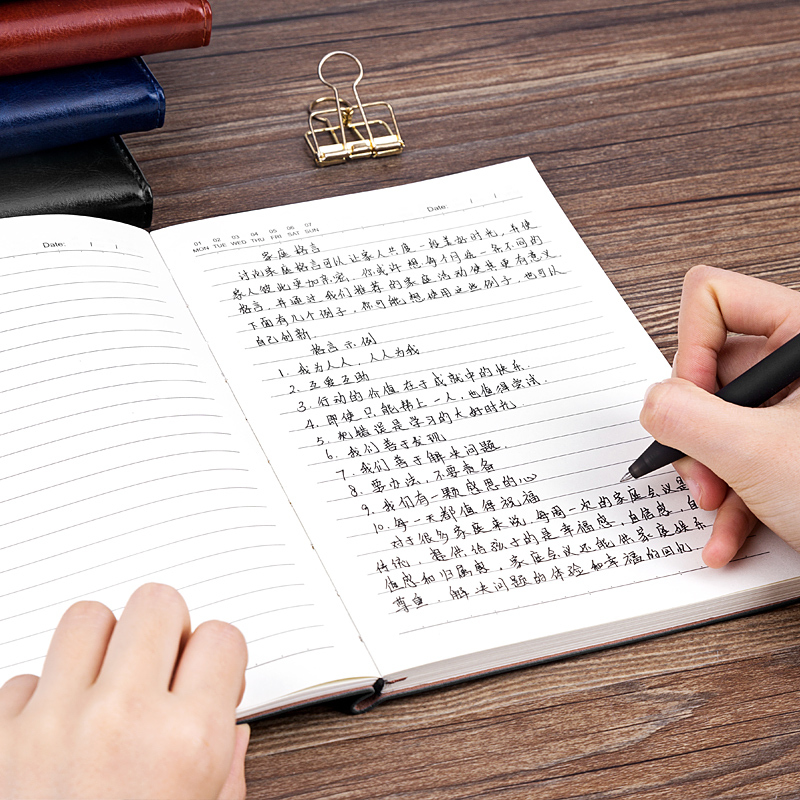 Date: / /
01 02 03 04 05 06 07
MON TUE WED THU FRI SAT SUN
Date: / /
家庭格言
讨论家庭格言可以让家人共度一段美好时光,并使
家人彼此更加亲密。你或许想每个月选一条不同的
格言,并通过我们推荐的家庭活动使其更有意义
下面有几个例子,你可能想使用这些例子,也可以
自己创新
格言示例
1. 我为人人,人人为我
2. 互爱互助
3. 行动的价值在于成就中的快乐.
4. 即使只能携上一人,也值得尝试.
5. 犯错误是学习的大好时光
6. 我们善于发现
7. 我们善于解决问题.
8. 要办法,不要责备
9. 我们有一颗感恩的心
10. 每一天都值得祝福
对于很多家庭来说,每周一次的家庭会议是
传统. 提供给孩子的是幸福感,自信感,自
信感和归属感,家庭会议还能供家庭娱乐
尊重.解决问题的体验和幸福的回忆